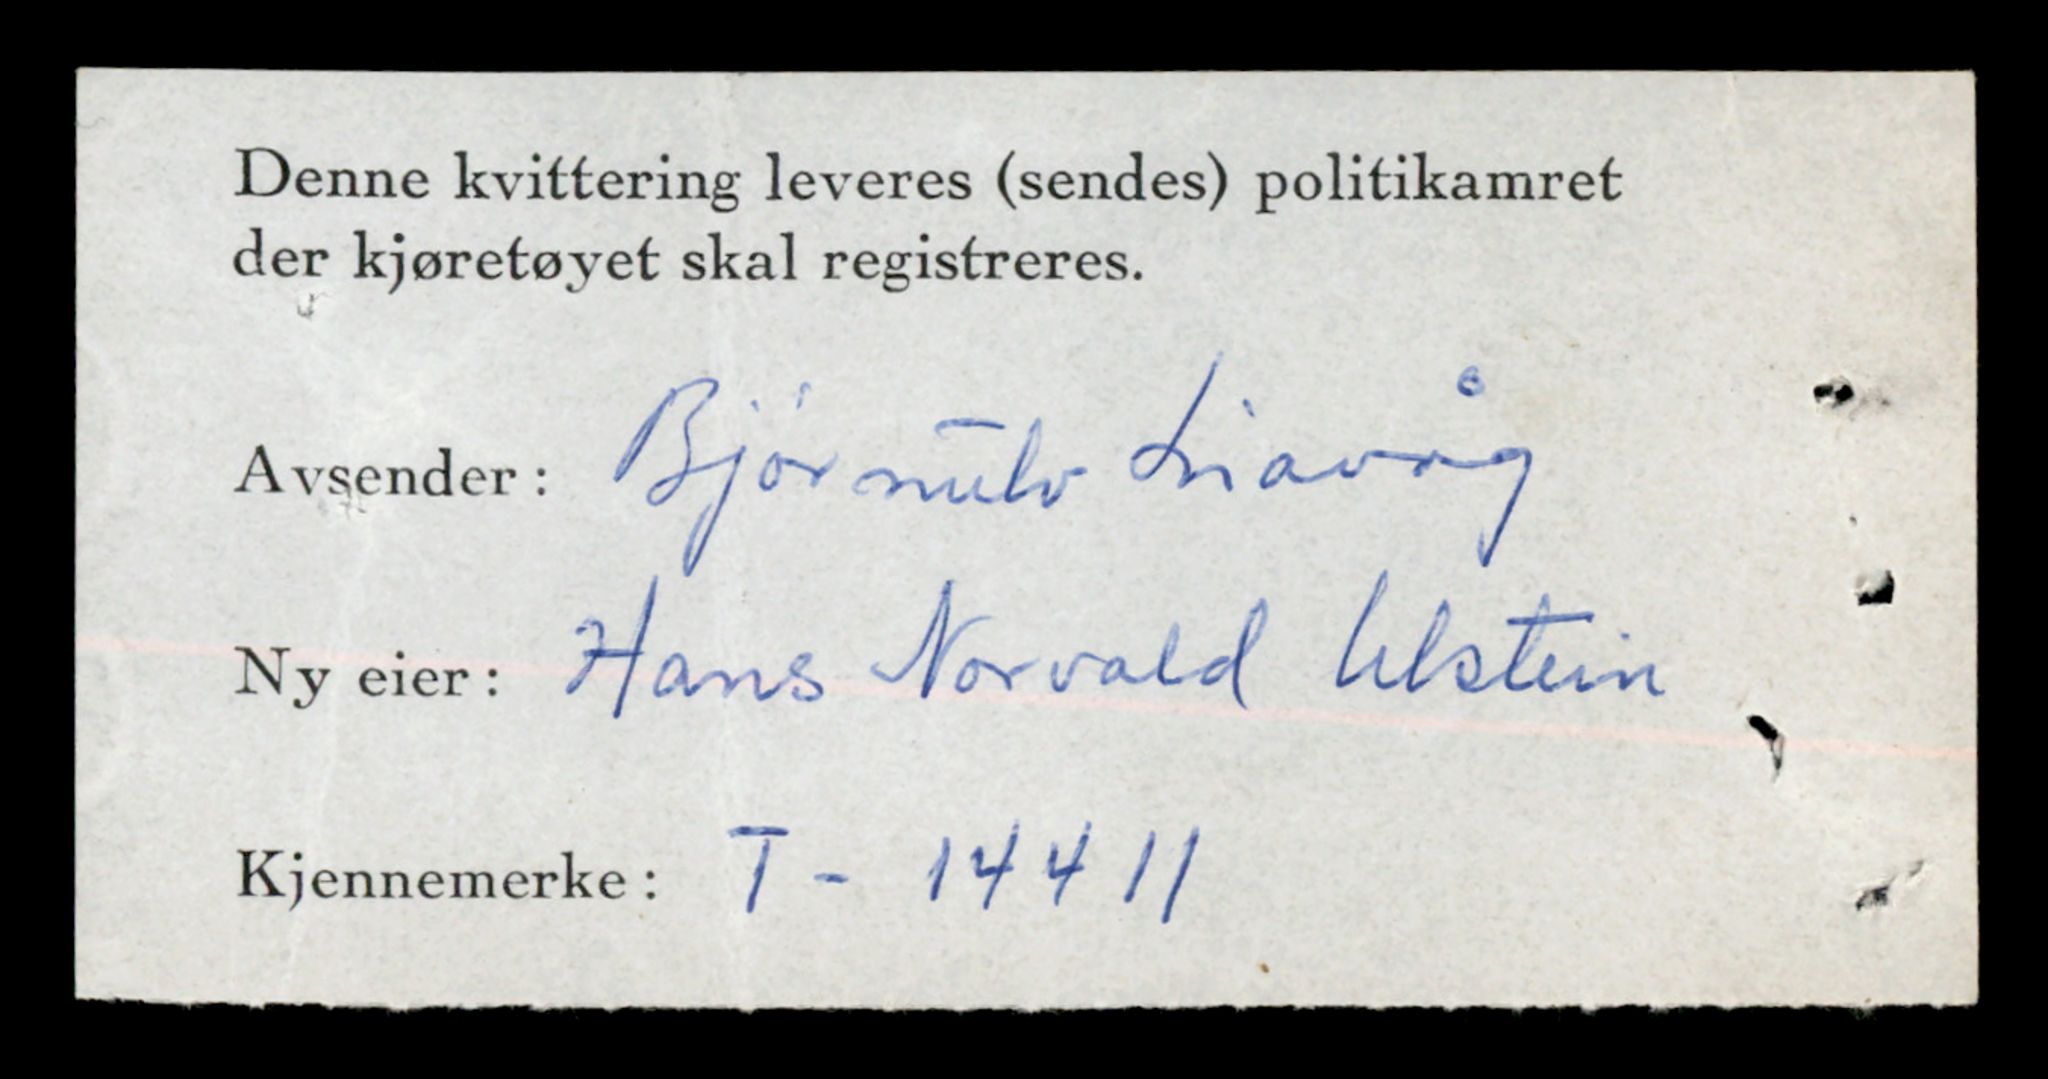 Denne kvittering leveres (sendes) politikamret
der kjøretøyet skal registreres.
Avsender: Bjørnulv Liavåg
Ny eier: Hans Norvald Ulstein
Kjennemerke: T - 14411